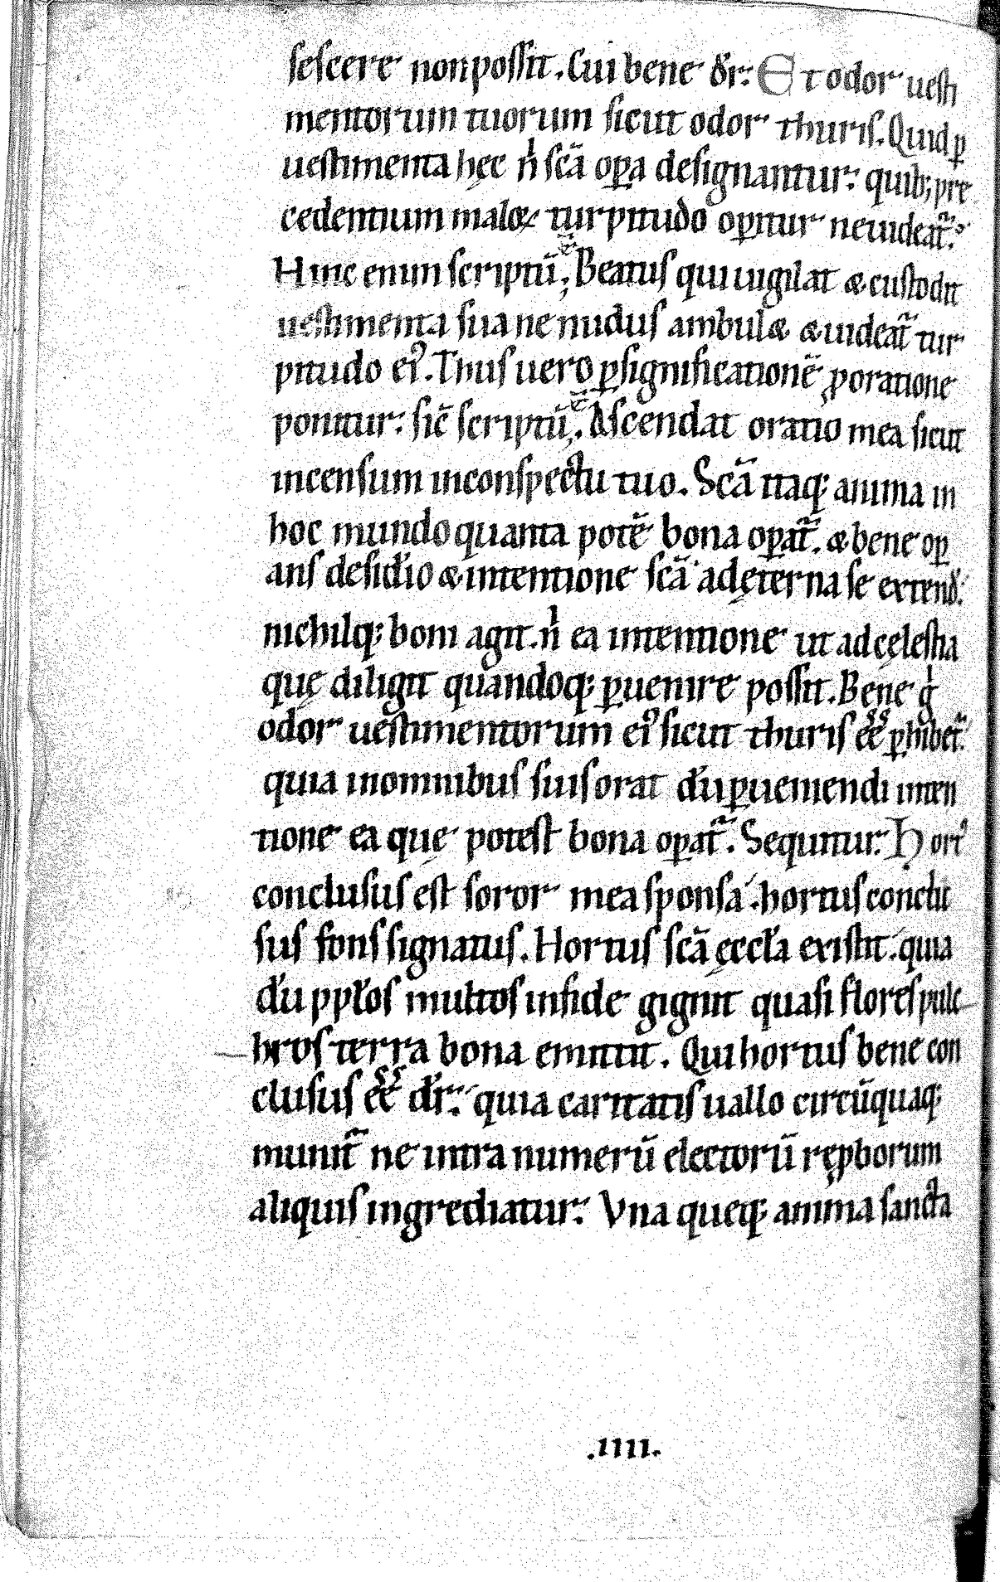 sescere non possit. Cui bene dr̄: Et odor uesti
mentorum tuorum sicut odor thuris. Quid ꝑ
uestimenta hęc ñ scā oꝑa designantur: quib; pre
cedentium maloꝝ turpitudo oꝑitur ne uideat᷑.
Hinc enim scriptū ē; Beatus qui uigilat & custodit
uestimenta sua ne nudus ambulet & uideat᷑ tur
pitudo eiꝰ. Thus uero ꝑ significationē ꝓ oratione
ponitur: sic̄ scriptū ē; Ascendat oratio mea sicut
incensum in conspectu tuo. Scā itaq; anima in
hoc mundo quanta potē bona oꝑat᷑. & bene oꝑ
ans desid̄io & intentione scā ad ęterna se extend̄.
nichilq; boni agit. ñ ea intentione ut ad cęlestia
quę diligit quandoq; ꝑuenire possit. Bene g̍
odor uestimentorum eiꝰ sicut thuris eē̄ ꝑhibet᷑.
quia in omnibus suis orat dū ꝑueniendi inten
tione ea quę potest bona oꝑat᷑. Sequitur. Hortꝰ
conclusus est soror mea sponsa. hortus conclu
sus fons signatus. Hortus scā ęccla existit. quia
dū pplos multos in fide gignit quasi flores pulc
hros terra bona emittit. Qui hortus bene con
clusus eē̄ dr̄: quia caritatis uallo circūquaq;
munit᷑ ne intra numerū electorū rep̱borum
aliquis ingrediatur. Vna queq; anima sancta
.IIII.